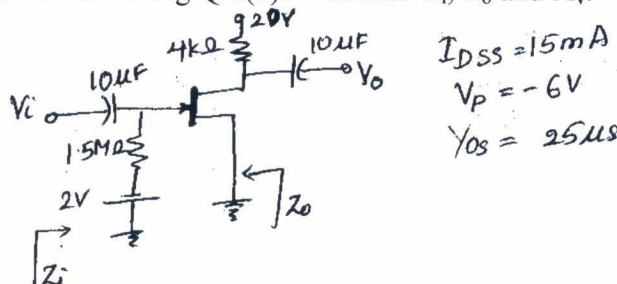 Zi, Zo and Av.
20V
4kΩ
10μF
Vo
10μF
Vi
1.5MΩ
2V
Zo
Zi
IDSS = 15mA
Vp = -6V
Yos = 25μs